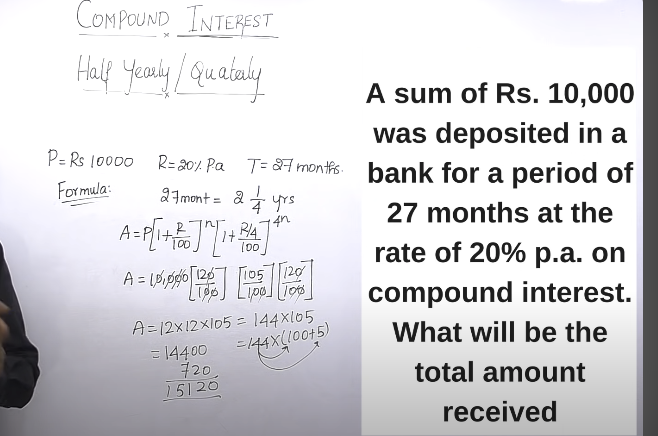 COMPOUND INTEREST
Half Yearly / Quaterly
P = Rs 10000 R = 20% Pa T = 27 months.
Formula: 27mont = 2 1/4 yrs
A = P[1 + R/100]^n [1 + R/4/100]^4n
A = 10,000 [120/100] [105/100] [120/100]
A = 12 x 12 x 105 = 144 x 105
= 14400 = 144 x (100+5)
720
15120
A sum of Rs. 10,000
was deposited in a
bank for a period of
27 months at the
rate of 20% p.a. on
compound interest.
What will be the
total amount
received